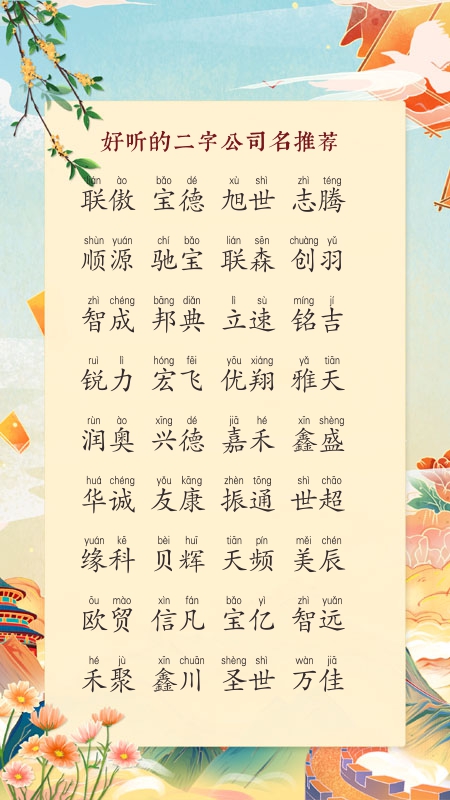 好听的二字公司名推荐
lián ào bǎo dé xù shì zhì téng
联傲 宝德 旭世 志腾
shùn yuán chí bǎo lián sēn chuàng yǔ
顺源 驰宝 联森 创羽
zhì chéng bāng diǎn lì sù míng jí
智成 邦典 立速 铭吉
ruì lì hóng fēi yōu xiáng yǎ tiān
锐力 宏飞 优翔 雅天
rùn ào xīng dé jiā hé xīn shèng
润奥 兴德 嘉禾 鑫盛
huá chéng yǒu kāng zhèn tōng shì chāo
华诚 友康 振通 世超
yuán kē bèi huī tiān pín měi chén
缘科 贝辉 天频 美辰
ōu mào xìn fán bǎo yì zhì yuǎn
欧贸 信凡 宝亿 智远
hé jù xīn chuān shèng shì wàn jiā
禾聚 鑫川 圣世 万佳